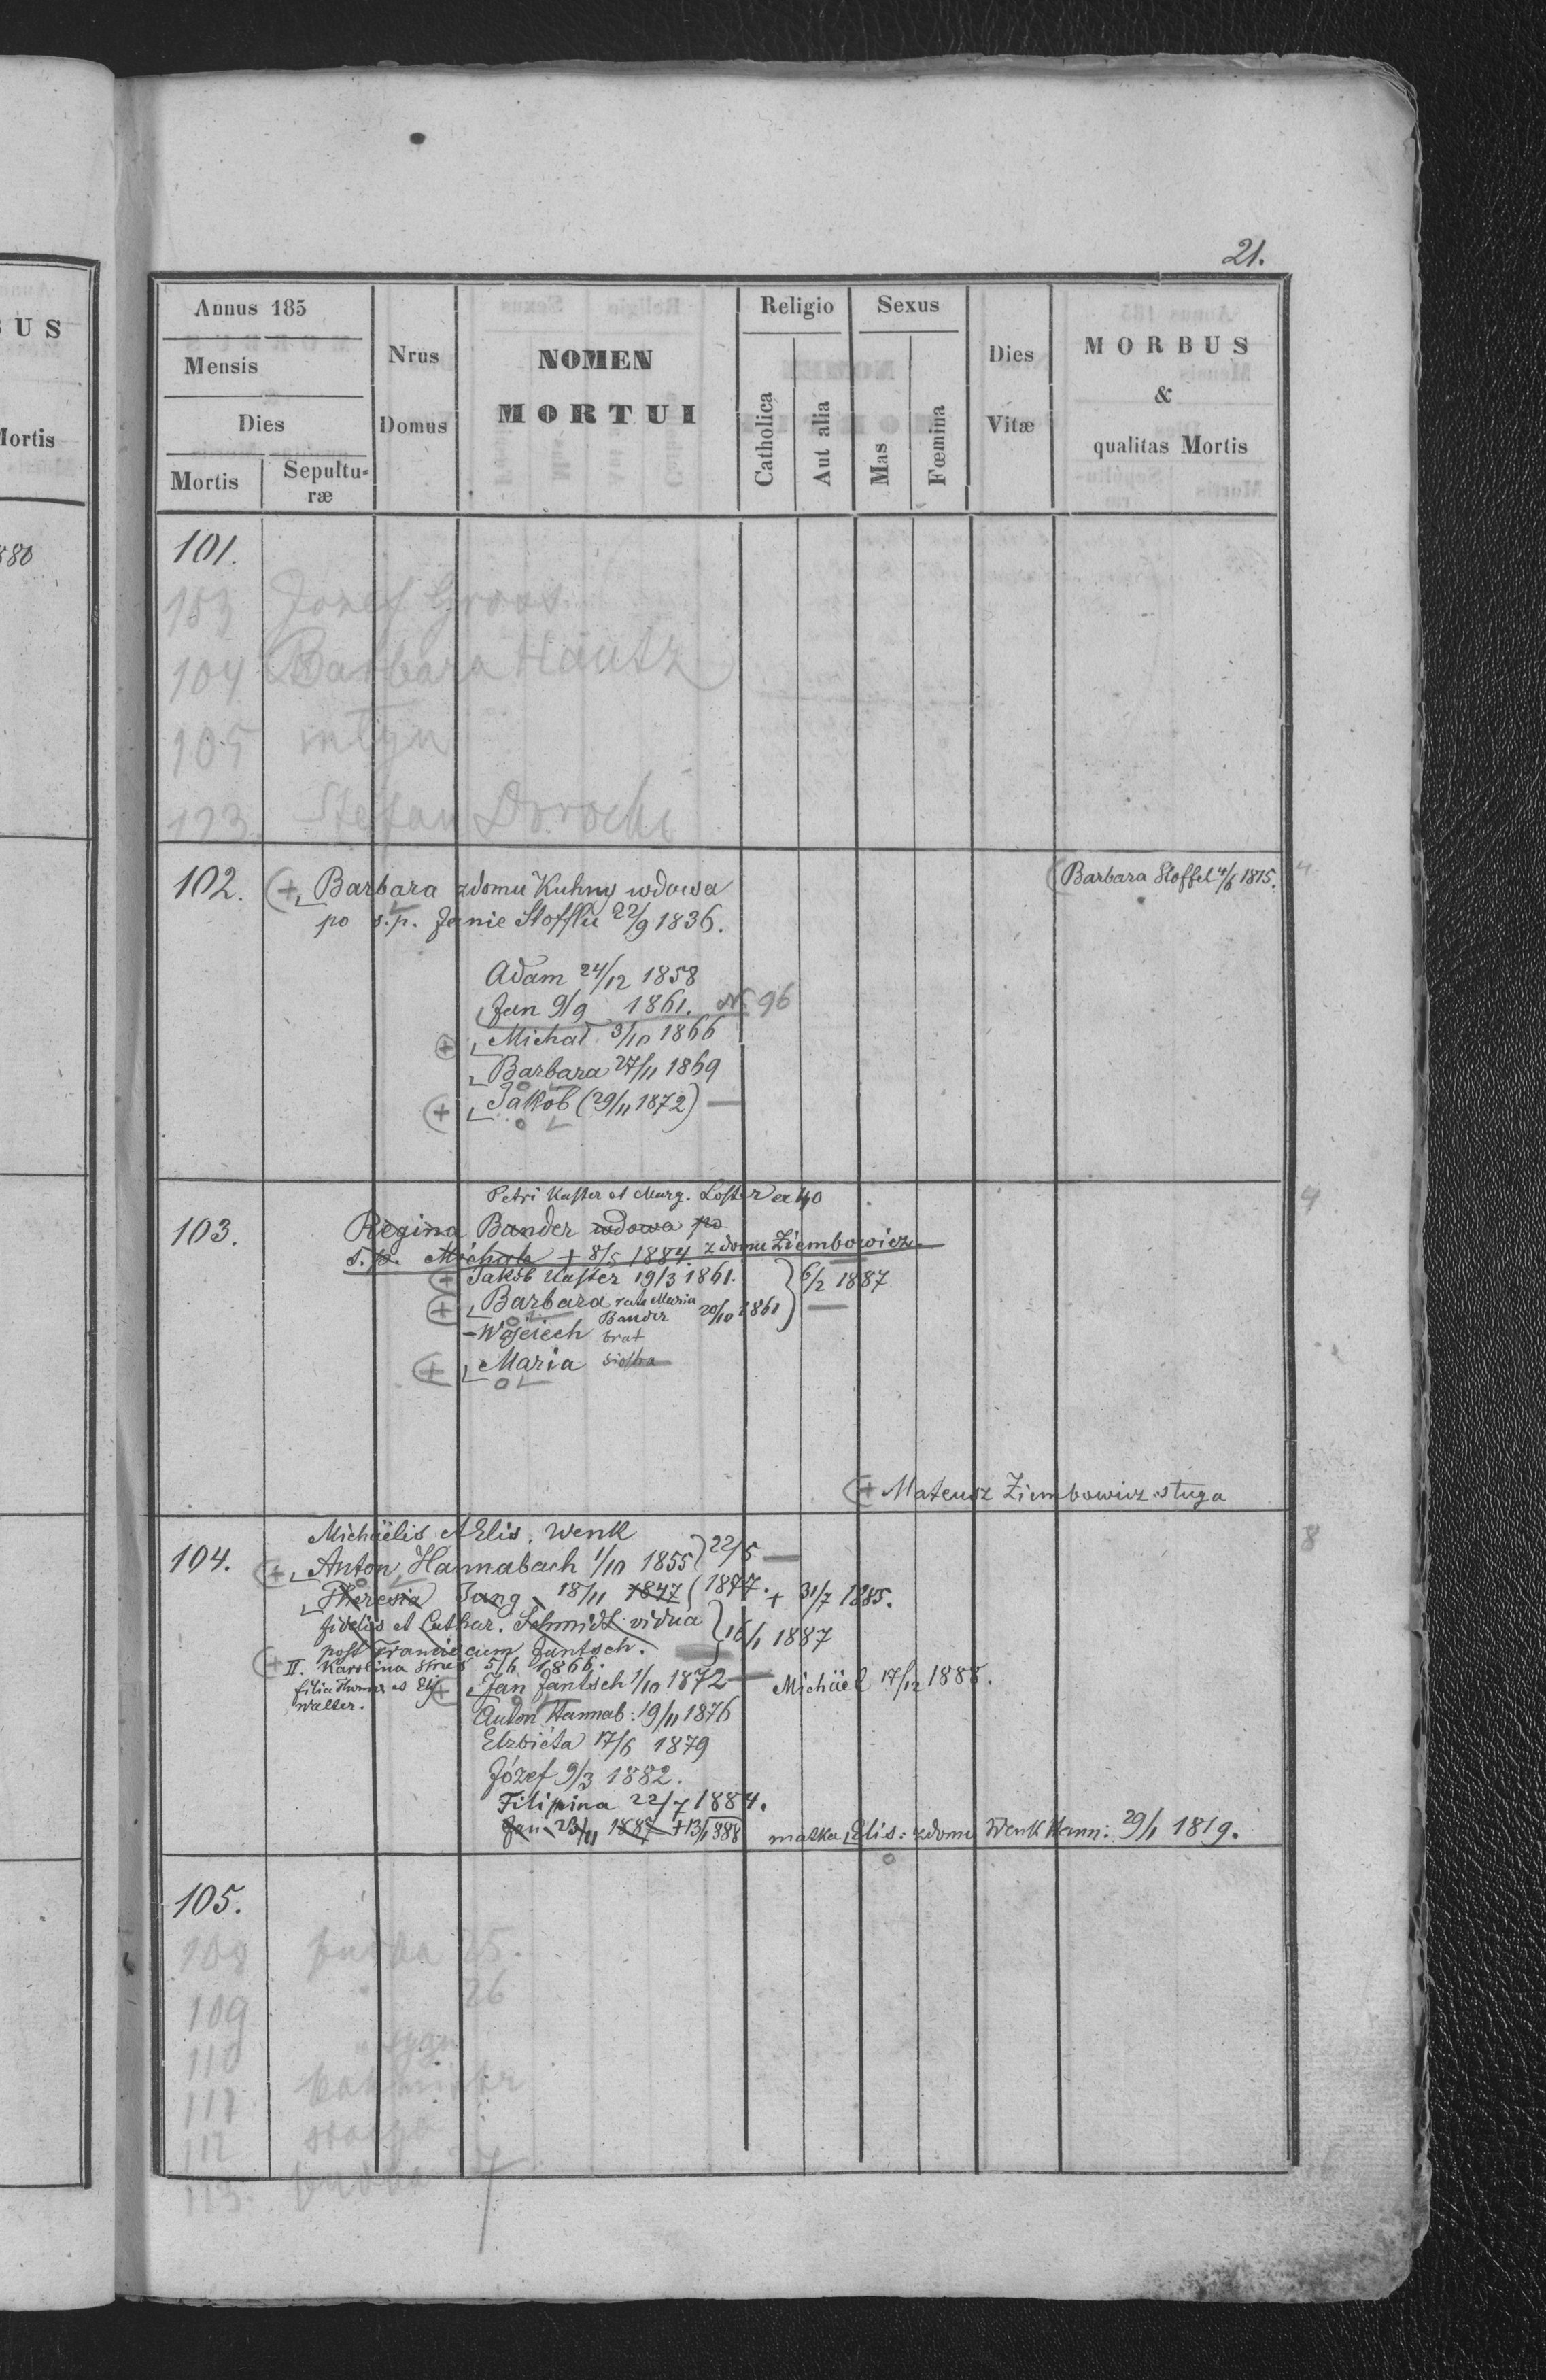 21.
Annus 185
Mensis
Dies
Mortis
Sepultu-
ræ
Nrus
Domus
NOMEN
MORTUI
Religio
Catholica
Aut alia
Sexus
Mas
Fœmina
Dies
Vitæ
MORBUS
&
qualitas Mortis
US
Mortis
880
101.
103 Jozef Groos
104 Barbara Hautz
105 młyn
123. Stefan
102. (+) Barbara zdomu Kuhny wdowa
po s.p. Janie Stofflu 22/9 1836.
(Barbara Stoffel 4/6 1815.
4
Adam 24/12 1858
Jan 9/9 1861. N. 96
(+) Michał 3/10 1866
Barbara 27/11 1869
(+) Jakób (29/11 1872) —
Petri Kaster et Marg. Loster ex 40
4
103. Regina Bander wdowa po
s.p. Michale + 8/5 1884 z domu Ziembowicz.
(+) Jakób Kaster 19/3 1861. } 6/2 1887
(+) Barbara Maria 20/10 1861
Bander
- Wojciech brat
(+) Maria
(+ Mateusz Ziembowicz sługa
8
Michäelis et Elis. Wenk
104. (+) Anton Hannabach 1/10 1855) 22/5 —
Theresia Jung 18/11 1847 ( 1877. + 31/7 1885.
fidelis et Cathar. Schmidt vidua } 16/1 1887
post Franciscum Jantsch.
(+ II. Karolina 5/6 1866.
filia et Eli
Walter.
(+ Jan Jantsch 1/10 1872 — Michäel 17/12 1888.
Anton Hannab: 19/11 1876
Elzbiéta 17/6 1879
Józef 9/3 1882.
Filipina 22/7 1884.
Jan 23/11 1887 + 13/1 888
matka Elis: zdomu Wenk Hann: 29/1 1819.
105.
108 budka 25.
109 26
110
111
112 stacya
113. budka 27